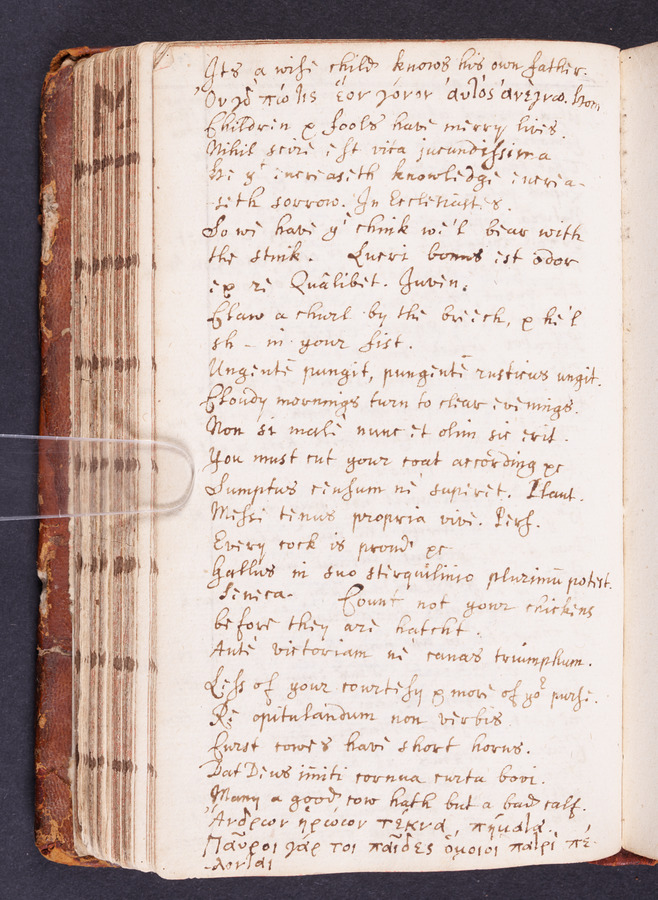 Its a wise child knows his own father.
Ὀυ γδ πώ τις ἑὸν γόνον ἀυτὸς ἀνέγνω. Hom
Children & fools have merry lives.
Nihil scire est vita jucundissima
He yt increaseth knowledge increa-
seth sorrow. In Ecclesiastes.
So we have ye chink we'l bear with
the stink. Lucri bonus est odor
ex re Qualibet. Juven.
Claw a churl by the breech, & he'l
sh - in your fist.
Ungentem pungit, pungentem rusticus ungit.
Cloudy mornings turn to clear evenings.
Non si male nunc et olim sic erit.
You must cut your coat according &c
Sumptus censum ne superet. Plaut.
Messe tenus propria vive. Pers.
Every cock is proud &c
Gallus in suo sterquilinio plurimū potest.
Seneca. Count not your chickens
before they are hatcht.
Ante victoriam ne canas triumphum.
Less of your courtesy & more of yor purse.
Re opitulandum non verbis.
Curst cowes have short horns.
Dat Deus immiti cornua curta bovi.
Many a good cow hath but a bad calf.
Ἀνδρων ηρωων τέκνα πήματα.
Παῦροι γάρ τοι παῖδες ὁμοιοι πατρι πέ-
-λονται